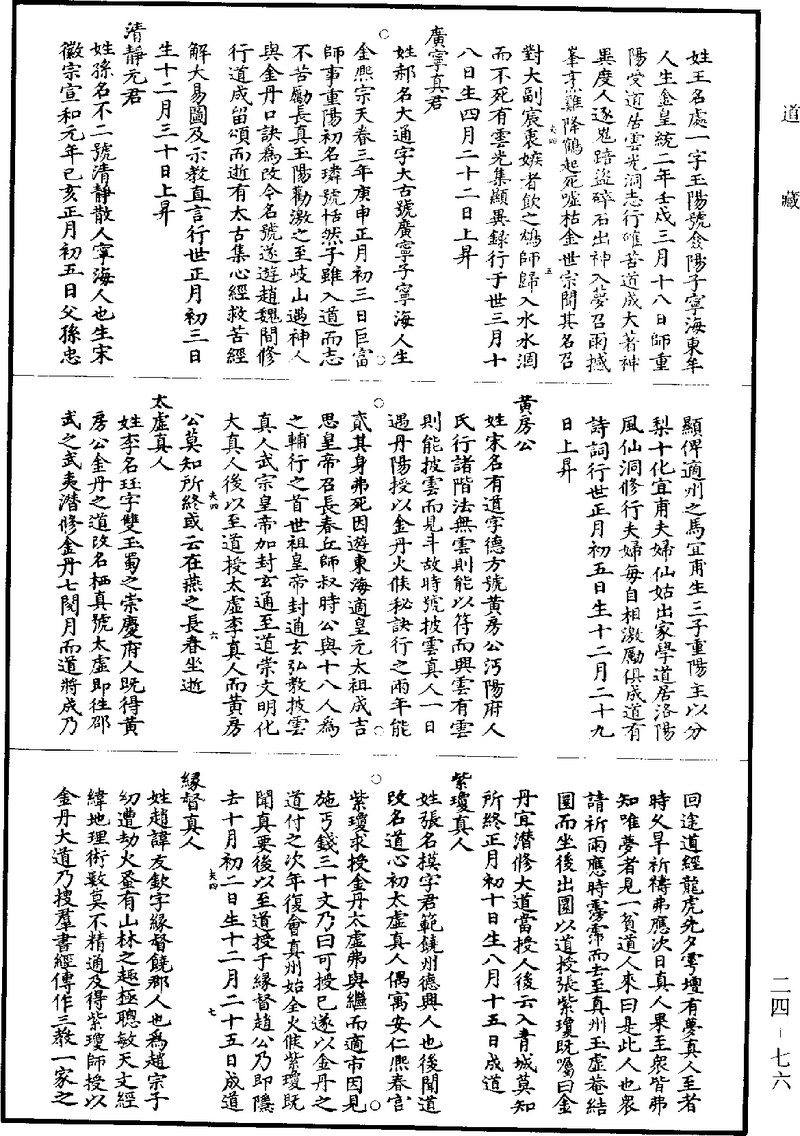 道藏
姓王名處一字玉陽號傘陽子寧海東牟
人生金皇統二年壬戌三月十八日師重
陽受道居雲光洞志行確苦道成大著神
異度人逐鬼踣盜碎石出神入夢召雨撼
峯烹雞降鶴起死噓枯金世宗聞其名召
夫四
五
對大副宸衷嫉者飲之鴆師歸入水水涸
而不死有雲光集顯異錄行于世三月十
八日生四月二十二日上昇
廣寧真君
姓郝名大通字太古號廣寧子寧海人生
金熙宗天眷三年庚申正月初三日巨富
師事重陽初名璘號恬然子雖入道而志
不苦勵長真玉陽勸激之至岐山遇神人
與金丹口訣為改今名號遂遊趙魏間修
行道成留頌而逝有太古集心經救苦經
解大易圖及示教直言行世正月初三日
生十二月三十日上昇
清靜元君
姓孫名不二號清靜散人寧海人也生宋
徽宗宣和元年已亥正月初五日父孫忠
顯俾適州之馬宜甫生三子重陽主以分
梨十化宜甫夫婦仙姑出家學道居洛陽
風仙洞修行夫婦每自相激勵俱成道有
詩詞行世正月初五日生十二月二十九
日上昇
黃房公
姓宋名有道字德方號黃房公沔陽府人
氏行諸階法無雲則能以符而興雲有雲
則能披雲而見斗故時號披雲真人一日
遇丹陽授以金丹火候秘訣行之兩年能
貳其身弗死因遊東海適皇元太祖成吉
思皇帝召長春丘師叔時公與十八人為
之輔行之首世祖皇帝封通玄弘教披雲
真人武宗皇帝加封玄通至道崇文明化
夫四
六
大真人後以至道授太虛李真人而黃房
公莫知所終或云在燕之長春坐逝
太虛真人
姓李名珏字雙玉蜀之崇慶府人既得黃
房公金丹之道改名栖真號太虛即往邵
武之武夷潛修金丹七閱月而道將成乃
回途道經龍虎先夕雩壇有夢真人至者
時父旱祈禱弗應次日真人果至眾皆弗
知唯夢者見一貧道人來曰是此人也眾
請祈雨應時霶霈而去至真州玉虛菴結
圜而坐後出圜以道授張紫瓊既囑曰金
丹宜潛修大道當授人後云入青城莫知
所終正月初十日生八月十五日成道
紫瓊真人
姓張名模字君範饒州德興人也後聞道
改名道心初太虛真人偶寓安仁熙春宮
紫瓊求授金丹太虛弗與繼而適市因見
施丐錢三十文乃曰可授已遂以金丹之
道付之次年復會真州始全火候紫瓊既
聞真要後以至道授于緣督趙公乃即隱
夫四
七
去十月初二日生十二月二十五日成道
緣督真人
姓趙諱友欽字緣督饒郡人也為趙宗子
幼遭劫火蚤有山林之趣極聰敏天文經
緯地理術數莫不精通及得紫瓊師授以
金丹大道乃搜羣書經傳作三教一家之
二四-七六